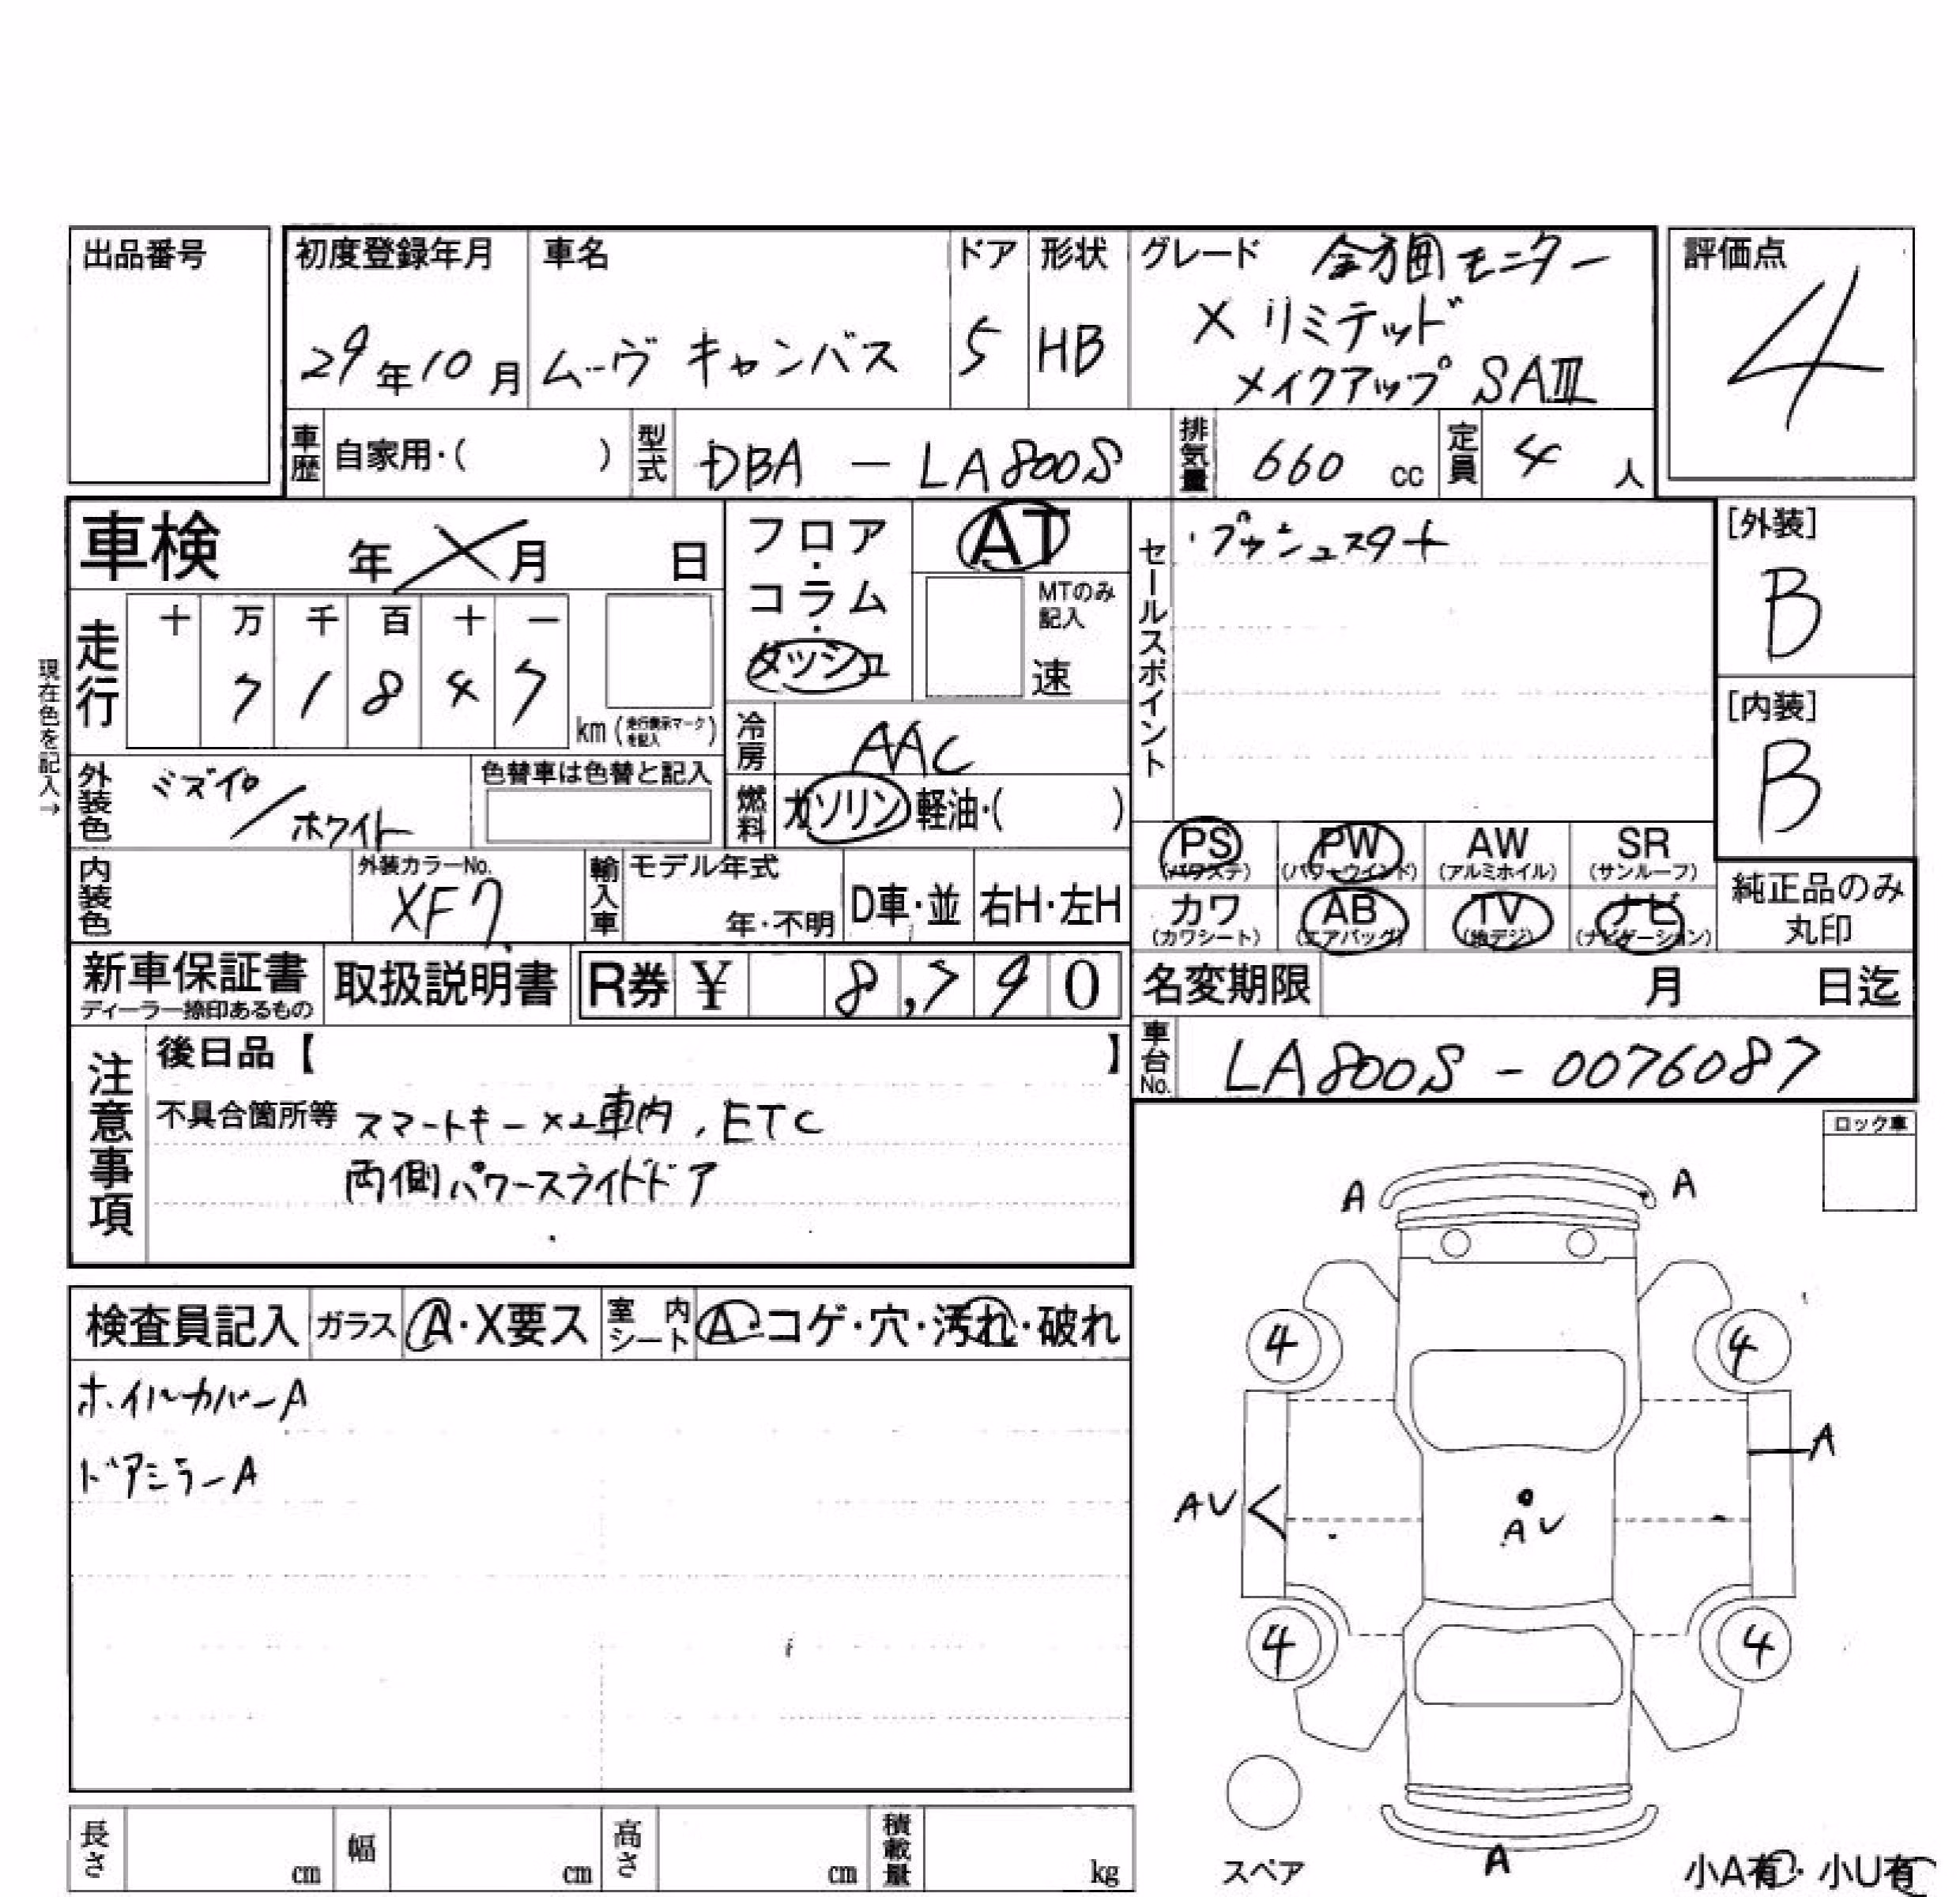 出品番号
初度登録年月 車名 ドア 形状 グレード 全方囲モニター 評価点
29年10月 ムーヴ キャンバス 5 HB X リミテッド 4
メイクアップ SAⅢ
車歴 自家用・( ) 型式 DBA - LA800S 排気量 660 cc 定員 4 人
車検 年 月 日
フロア・コラム・ダッシュ
AT
MTのみ記入
速
セールスポイント
・プッシュスタート
[外装]
B
[内装]
B
現在色を記入→
走行 十 万 千 百 十 一
7 1 8 4 7
km(走行表示マークを記入)
冷房 AAC
外装色 ミズイロ/ホワイト
色替車は色替と記入
燃料 ガソリン 軽油・( )
PS PW AW SR
(パワステ) (パワーウインド) (アルミホイル) (サンルーフ)
カワ AB TV ナビ
(カワシート) (エアバッグ) (地デジ) (ナビゲーション)
純正品のみ
丸印
内装色 外装カラーNo. XF7 輸入車 モデル年式 年・不明 D車・並 右H・左H
新車保証書 取扱説明書 R券 ¥ 8,790 名変期限 月 日迄
ディーラー捺印あるもの
車台No. LA800S - 0076087
注意事項
後日品【 】
不具合箇所等 スマートキー×2車内, ETC
両側パワースライドドア
ロック車
A A
検査員記入 ガラス A・X要ス 室内シート A・コゲ・穴・汚れ・破れ
ホイルカバーA
ドアミラーA
4 4
A
AU
AU
4 4
A
スペア
小A有・小U有
長さ cm 幅 cm 高さ cm 積載量 kg